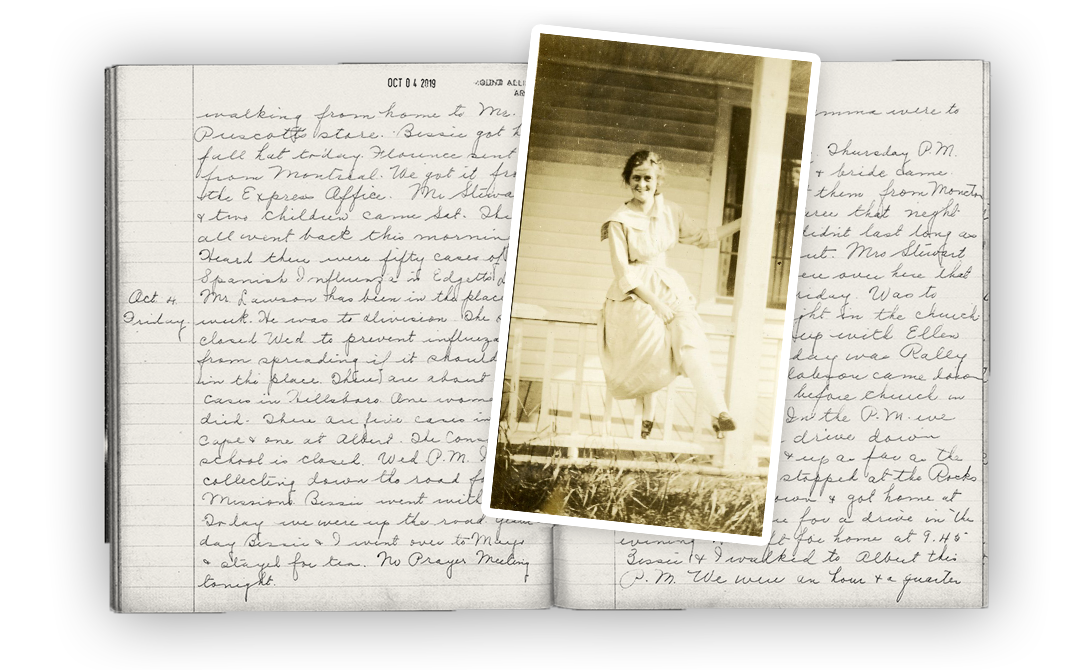 OCT 04 2019
walking from home to Mr.
Prescott's store. Bessie got h
fall hat today. Florence sent
from Montreal. We got it fro
the Express Office. Mr Stewa
& two children came Sat. The
all went back this mornin
Heard there were fifty cases of
Spanish Influenza in Edgetts
Oct. 4
Friday
Mr. Lawson has been in the place
week. He was to division. The
closed Wed to prevent influenza
from spreading if it should
in the place. There are about
cases in Hillsboro. One woman
died. There are five cases in
Cape & one at Albert. The Cons
school is closed. Wed P.M. I
collecting down the road fo
Missions Bessie went with
Today we were up the road
day Bessie & I went over to
& stayed for tea. No Prayer Meeting
tonight.
mma were to
Thursday P.M.
& bride came
them from Moncton
that night
didn't last long as
ut. Mrs Stewart
over here that
day. Was to
ht in the church
up with Ellen
day was Rally
came down
before church in
In the P.M. we
drive down
& up as far as the
stopped at the Rocks
own & got home at
for a drive in the
evening for home at 9.45
Bessie & I walked to Albert this
P.M. We were an hour & a quarter